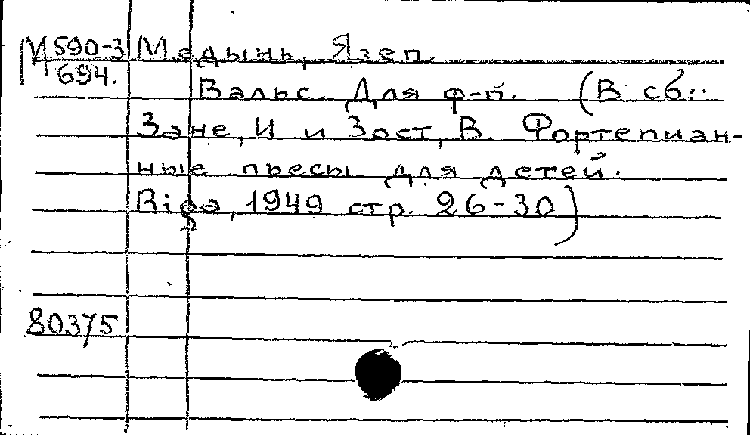 М 590-3 Медынь, Язеп.
694.
Вальс. Для ф-п. (В сб.:
Зане, И и Зост, В. Фортепиан-
ные пьесы для детей.
Riga, 1949 стр. 26-30)
80375